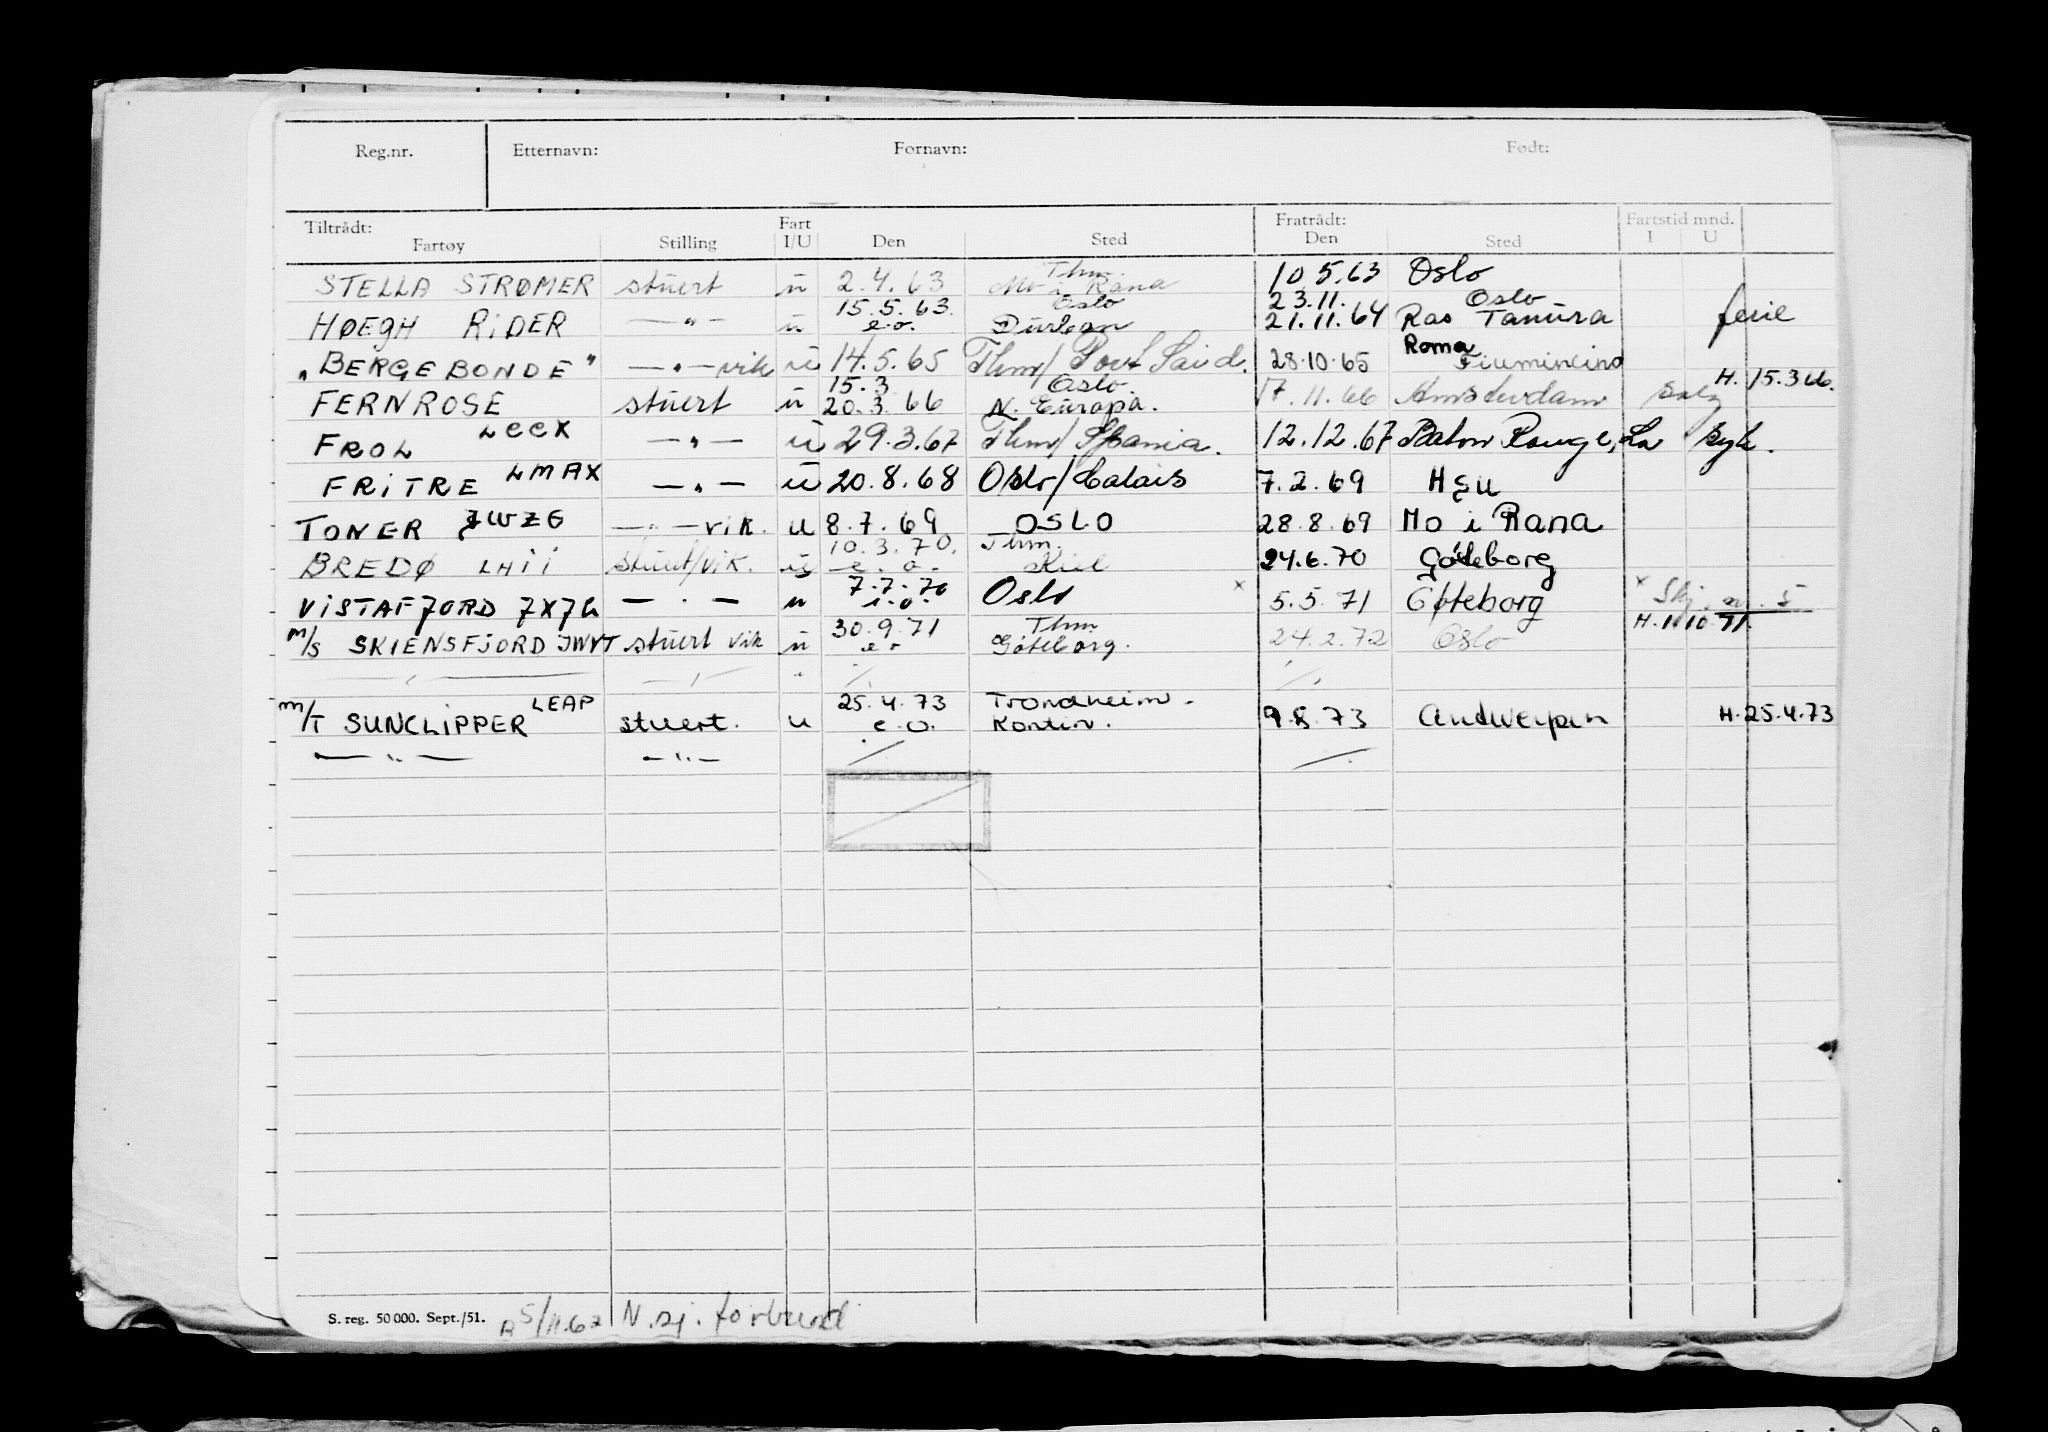 Reg.nr. Etternavn: Fornavn: Født:
Tiltrådt: Fratrådt: Fartstid mnd.
Fartøy Stilling Fart I/U Den Sted Den Sted I U
Thm.
STELLA STRØMER stuert u 2.4.63 Mo i Rana 10.5.63 Oslo
15.5.63. Oslo 23.11. Oslo
HØEGH RIDER — " — u e.o. Durban 21.11.64 Ras Tanura ferie
Roma
„BERGEBONDE" — " — vik u 14.5.65 Thm/ Port Said. 28.10.65 Fiumincino
15.3 Oslo. H. 15.3.66.
FERNROSE stuert u 20.3.66 N. Europa. 17.11.66 Amsterdam salg
FROL LCCX — " — u 29.3.67 Thm/ Spania. 12.12.67 Baton Rouge, La syk.
FRITRE LMAX — " — u 20.8.68 Oslo/Calais 7.2.69
TONER JWZG — " — vik. u 8.7.69 OSLO 28.8.69 Mo i Rana
10.3.70. Thm.
BREDØ LHII stuert/vik. u e.o. Kiel 24.6.70 Göteborg
7.7.70
VISTAFJORD — " — u Oslo x 5.5.71 Gøteborg x
30.9.71 Thm H. 1.10.71.
m/s SKIENSFJORD JWVT stuert vik u Göteborg. 24.2.72 Oslo
LEAP 25.4.73 Trondheim.
m/T SUNCLIPPER stuert. u e.o. Kontin. 9.8.73 Antwerpen H. 25.4.73
— " — — " —
S. reg. 50 000. Sept./51. N. sj. forbund